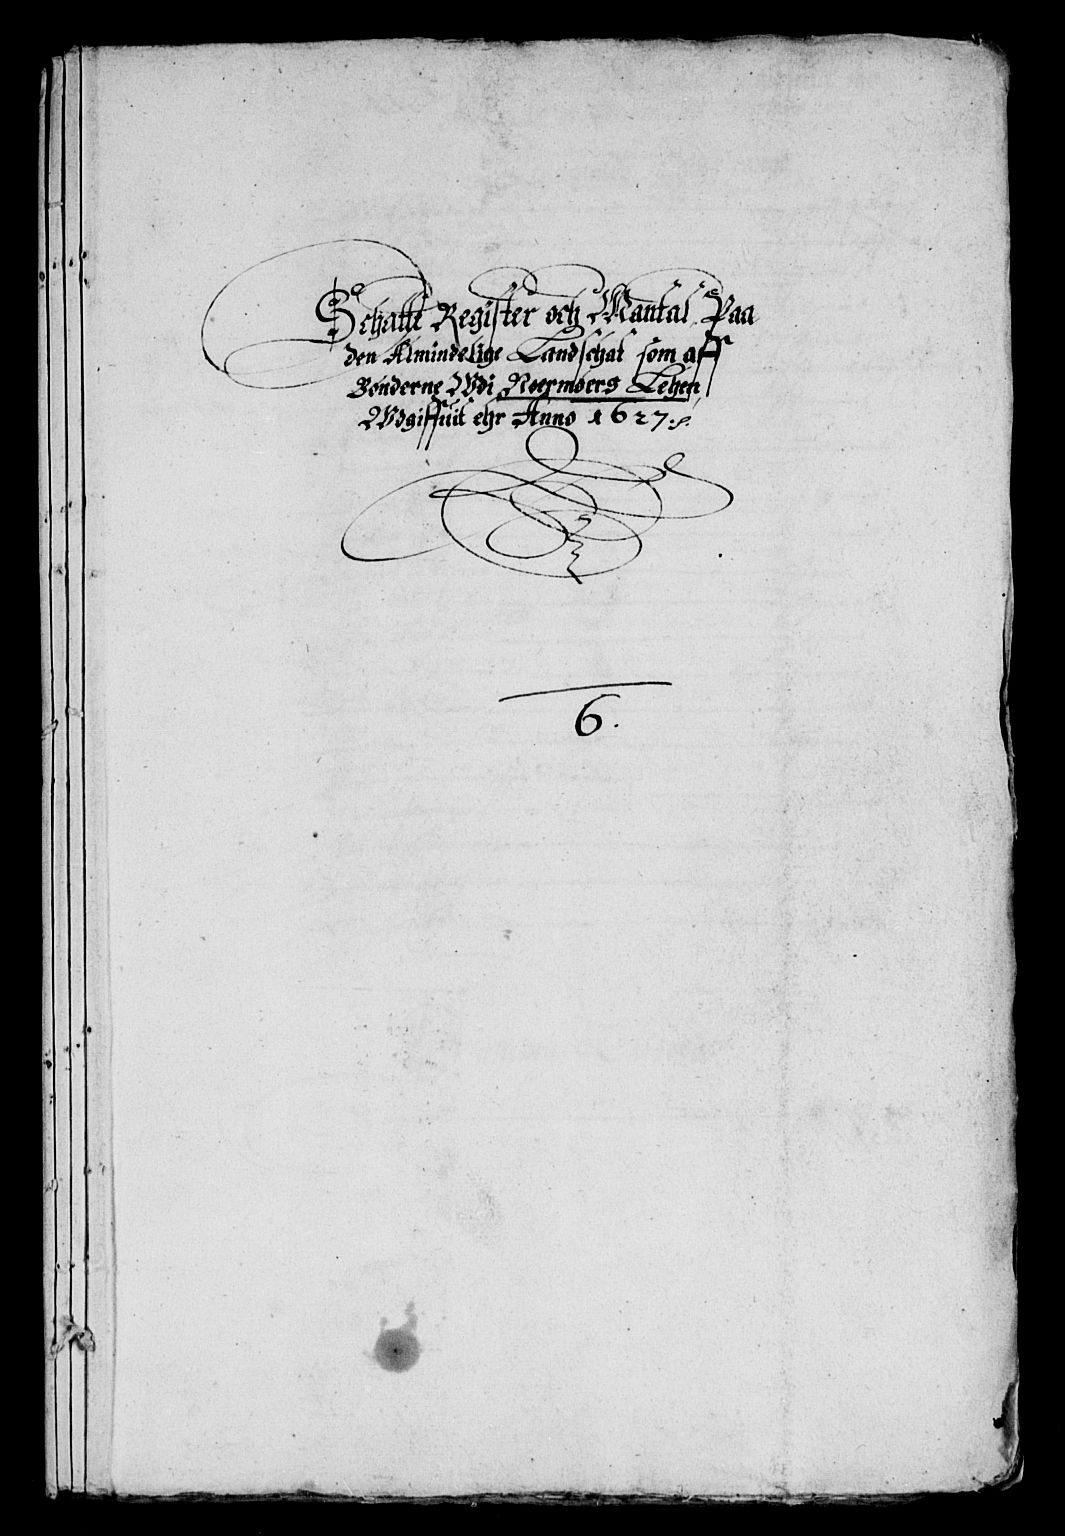 Schatte Register och Mantal Paa
den Almindelige Landschat som aff
Bønderne Wdi Noermøers Lehen
Wdgiffuit ehr Anno 1627
6.